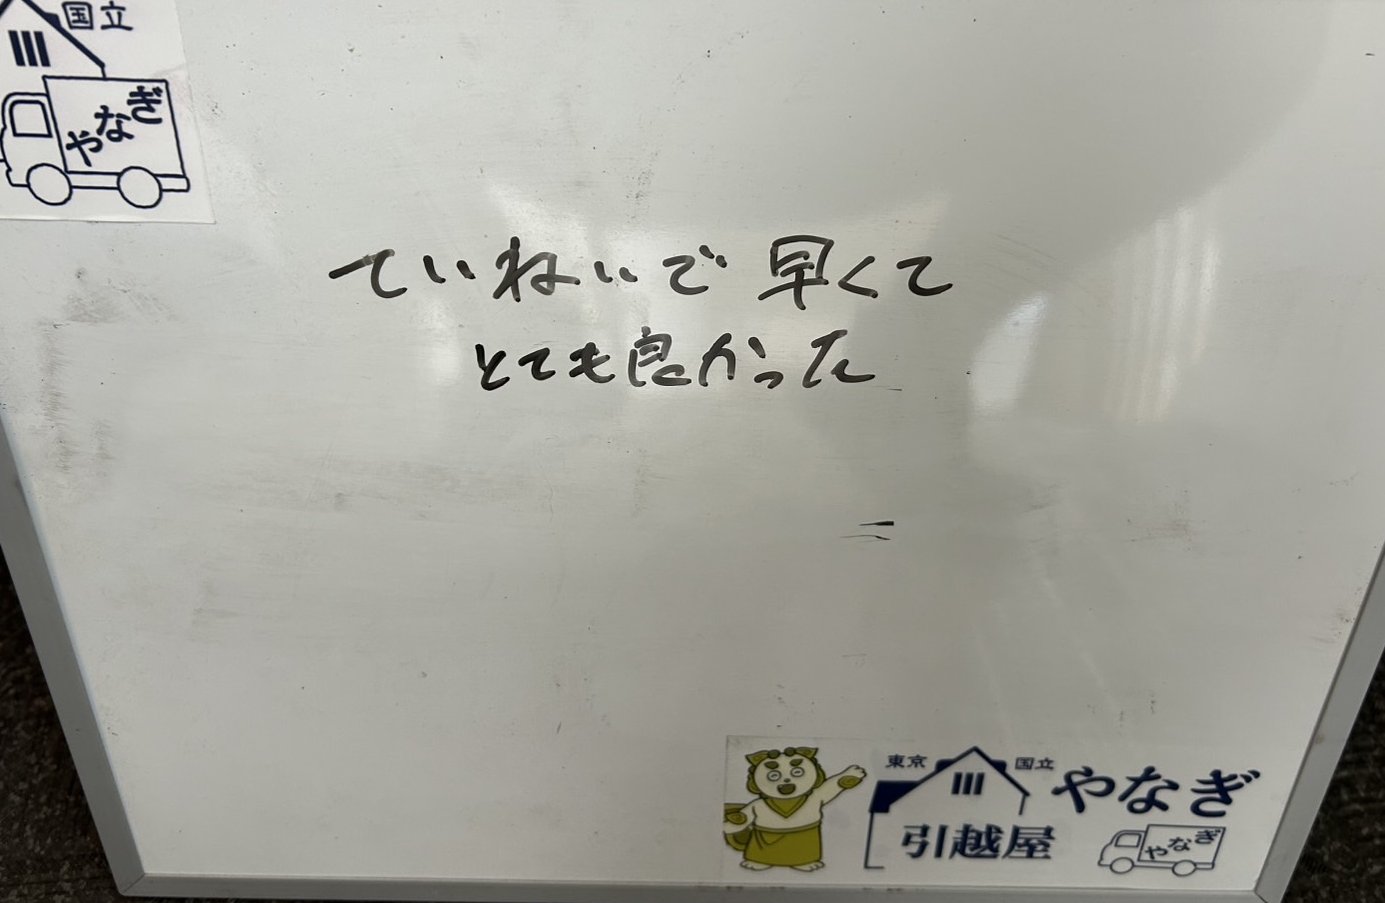 国立
やなぎ
ていねいで 早くて
とても良かった
東京 国立 やなぎ
引越屋
やなぎ